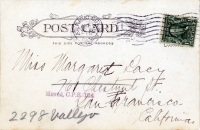 POST CARD
THIS SIDE FOR THE ADDRESS
Miss Margaret Dacy
Chestnut St.
San Francisco
California
2298 Vallejo